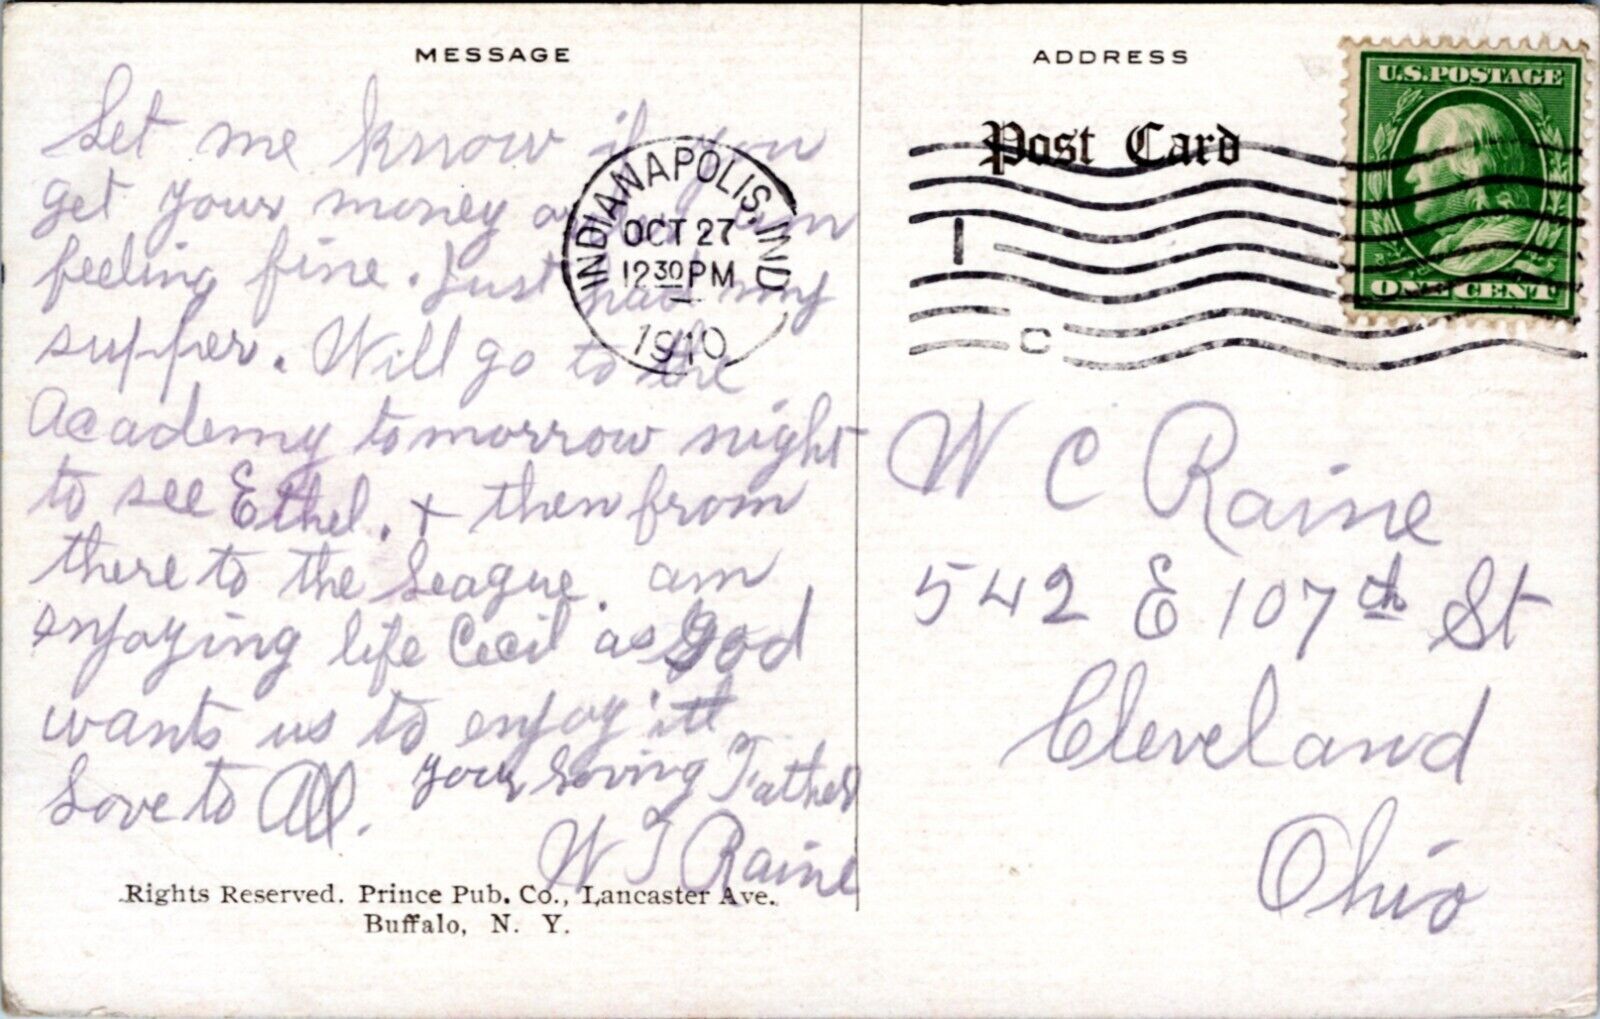 MESSAGE
Let me know if you
get your money and I am
feeling fine. Just had my
supper. Will go to the
Academy tomorrow night
to see Ethel. + then from
there to the League. am
enjoying life Cecil as God
wants us to enjoy it
Love to All. Your Loving Father
W T Raine
Rights Reserved. Prince Pub. Co., Lancaster Ave.
Buffalo, N. Y.
INDIANAPOLIS, IND
OCT 27
12 30 PM
1910
ADDRESS
Post Card
1
C
U.S. POSTAGE
ONE CENT
W C Raine
542 E 107th St
Cleveland
Ohio